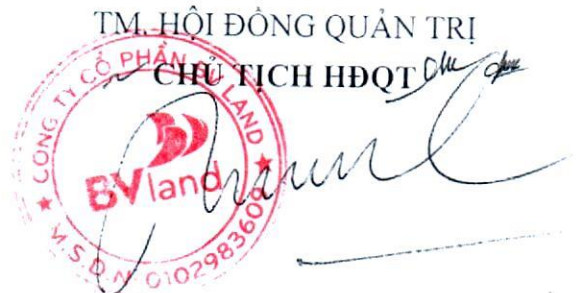 TM. HỘI ĐỒNG QUẢN TRỊ
CHỦ TỊCH HĐQT
CÔNG TY CỔ PHẦN BV LAND
BVland
M.S.D.N